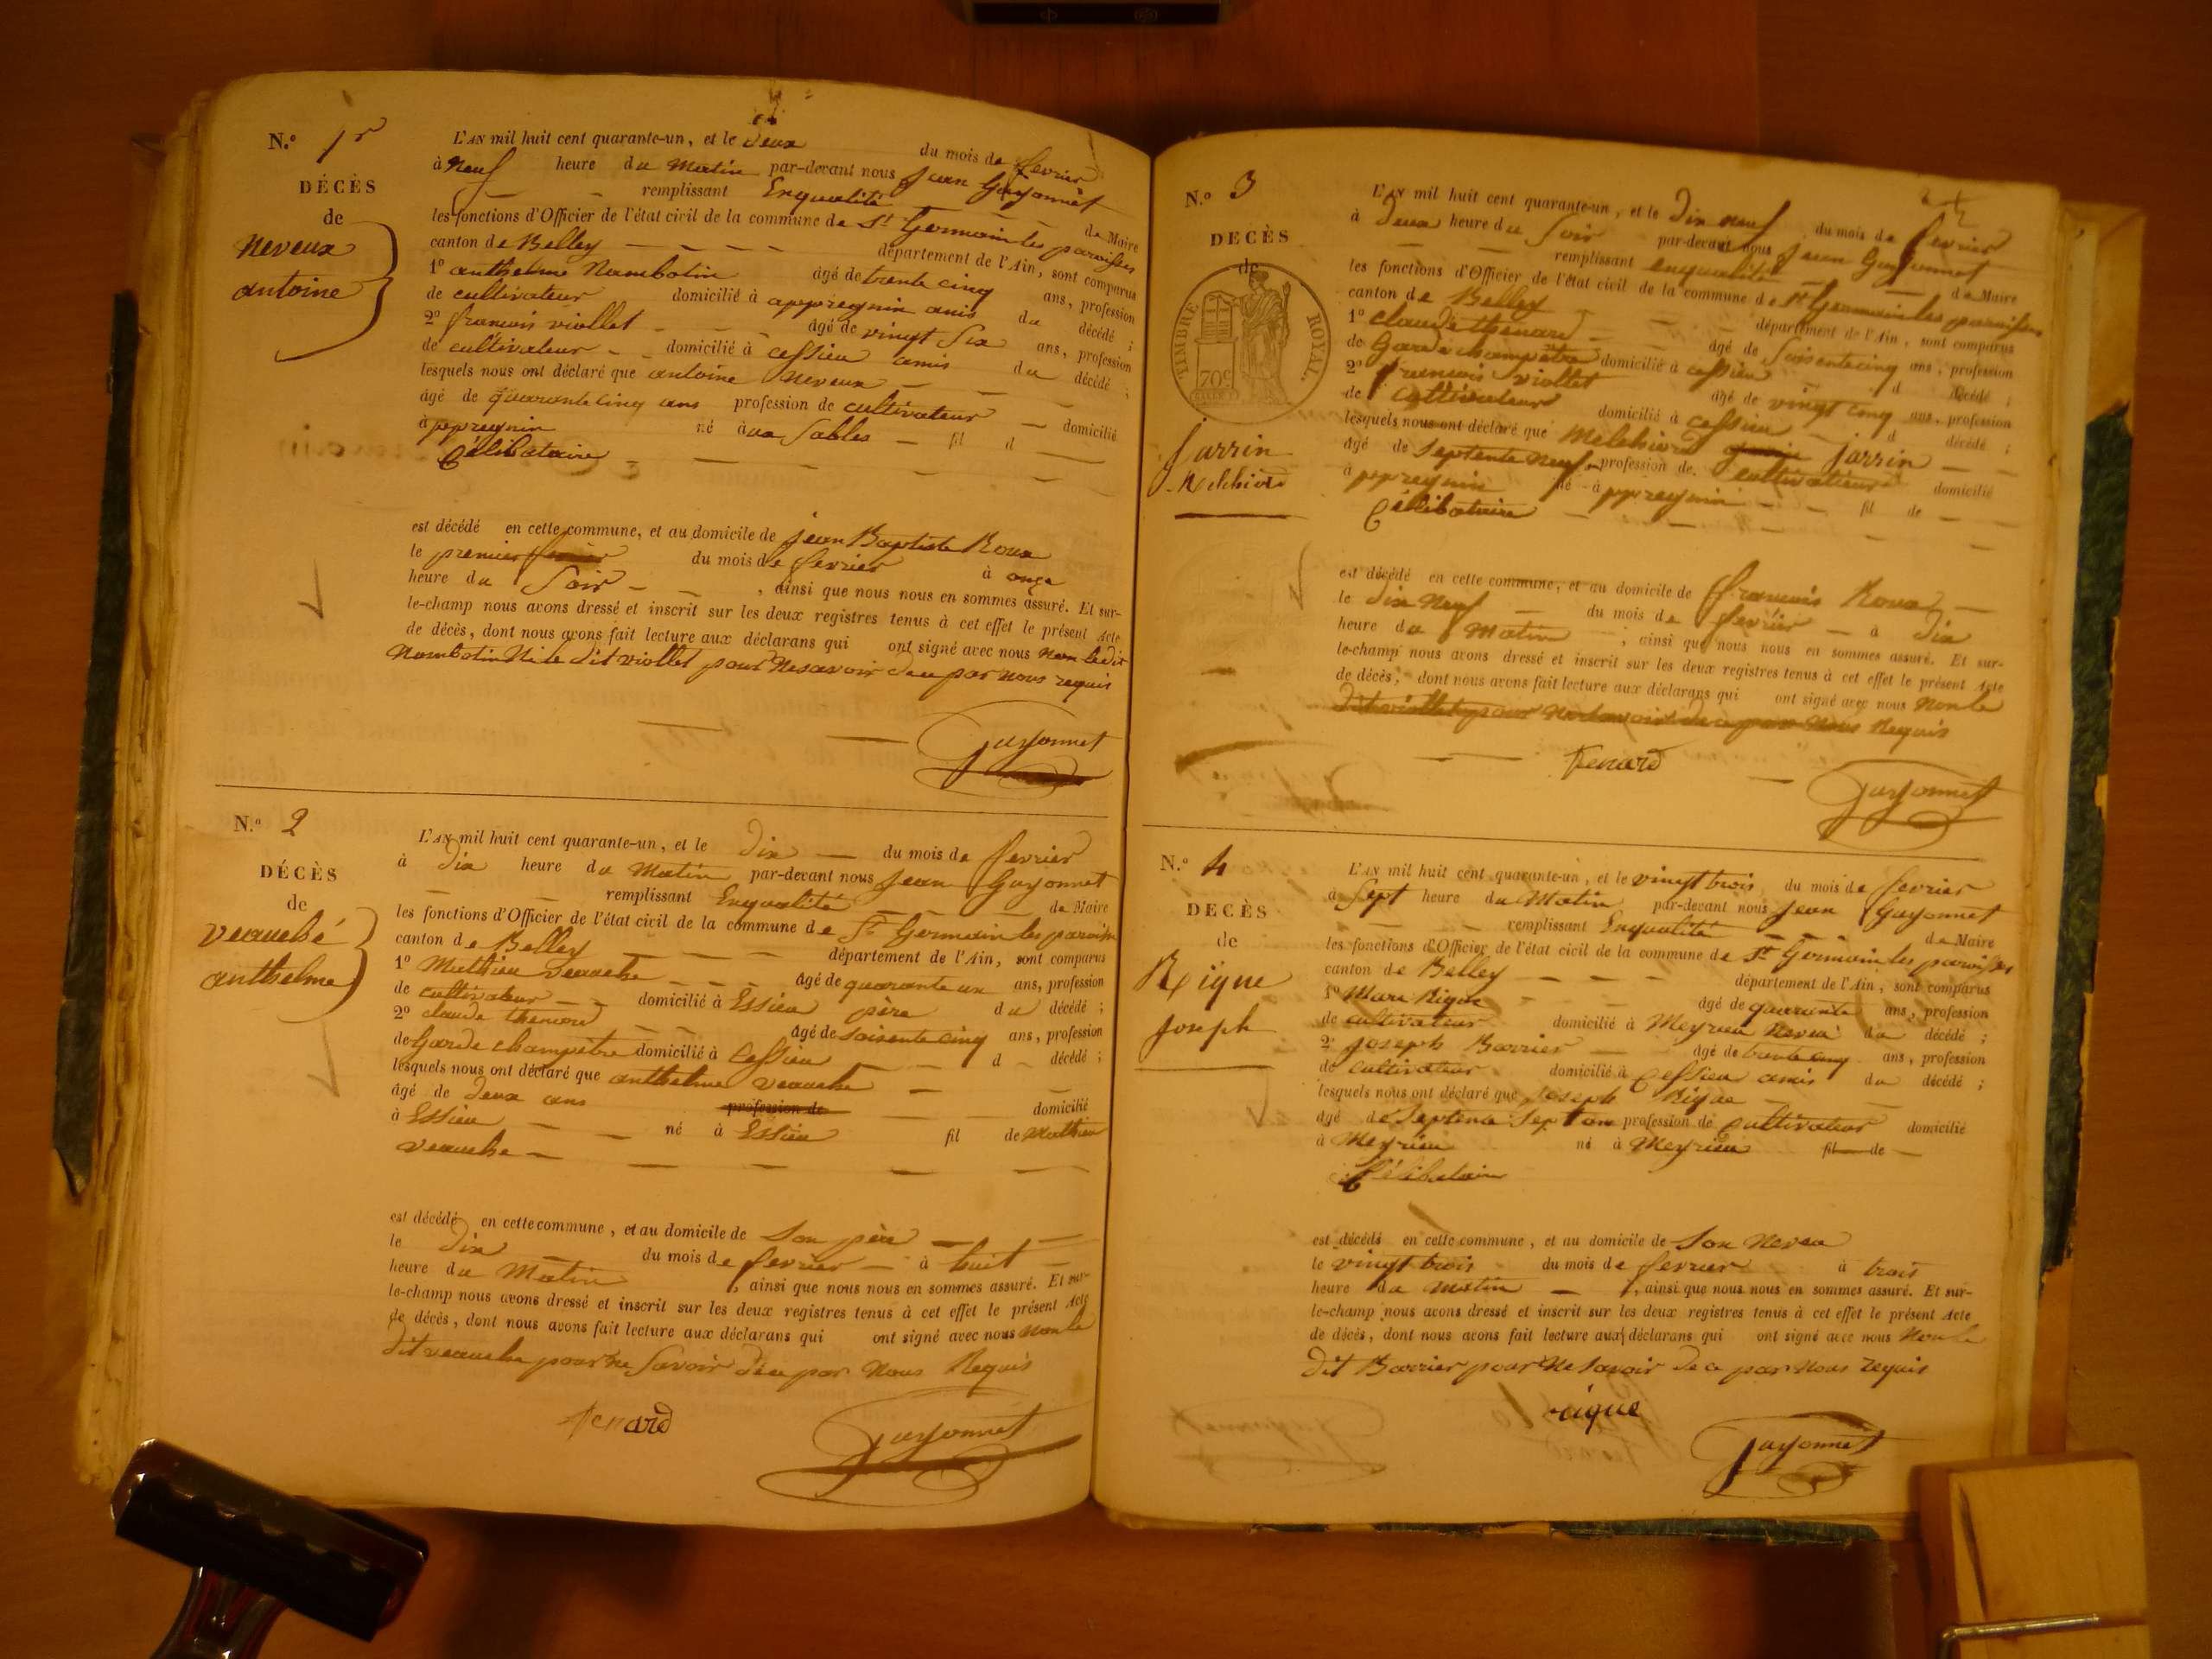 N.º 1r
DÉCÈS
de
Neveux
antoine
L'AN mil huit cent quarante-un, et le deux du mois de fevrier
à Neuf heure du Matin par-devant nous Jean Guyonnet
remplissant Enqualité de Maire
les fonctions d'Officier de l'état civil de la commune de St Germain les paroisses
canton de Belley département de l'Ain, sont comparus
1º anthelme Nambotin âgé de trente cinq ans, profession
de cultivateur domicilié à appregnin amis du décédé ;
2º francois viollet âgé de vingt Six ans, profession
de cultivateur domicilié à cessieu amis du décédé ;
lesquels nous ont déclaré que antoine Neveux
âgé de quarante cinq ans profession de cultivateur domicilié
à ppregnin né aux Sables fil d
Célibataire
est décédé en cette commune, et au domicile de jean Baptiste Roux
le premier du mois de fevrier à onze
heure du Soir , ainsi que nous nous en sommes assuré. Et sur-
le-champ nous avons dressé et inscrit sur les deux registres tenus à cet effet le présent Acte
de décès, dont nous avons fait lecture aux déclarans qui ont signé avec nous Non ledit
Nambotin Ni le dit viollet pour Nesavoir dece par Nous requis
Guyonnet
N.º 2
DÉCÈS
de
veauché
anthelme
L'AN mil huit cent quarante-un, et le Dix du mois de fevrier
à Dix heure du Matin par-devant nous Jean Guyonnet
remplissant Enqualité de Maire
les fonctions d'Officier de l'état civil de la commune de St Germain les paroisses
canton de Belley département de l'Ain, sont comparus
1º Mathieu veauche âgé de quarante un ans, profession
de cultivateur domicilié à Essieu père du décédé ;
2º claude thenard âgé de soisente cinq ans, profession
de Garde champêtre domicilié à Cessieu d décédé ;
lesquels nous ont déclaré que anthelme veauche
âgé de Deux ans profession de domicilié
à Essieu né à Essieu fil de Mathieu
veauche
est décédé en cette commune, et au domicile de Son père
le Dix du mois de fevrier à huit
heure du Matin , ainsi que nous nous en sommes assuré. Et sur-
le-champ nous avons dressé et inscrit sur les deux registres tenus à cet effet le présent Acte
de décès, dont nous avons fait lecture aux déclarans qui ont signé avec nous Nonle
Dit veauche pour ne Savoir dece par Nous Requis
Tenard
Guyonnet
N.º 3
DÉCÈS
de
TIMBRE ROYAL.
70c
Jarrin
Melchiord
L'AN mil huit cent quarante-un, et le Dix neuf du mois de fevrier
à Deux heure du Soir par-devant nous Jean Guyonnet
remplissant enqualité de Maire
les fonctions d'Officier de l'état civil de la commune de St Germain les paroisses
canton de Belley département de l'Ain, sont comparus
1º claude thenard âgé de Soisentecinq ans, profession
de Garde champêtre domicilié à cessieu d décédé ;
2º francois viollet âgé de vingt cinq ans, profession
de cultivateur domicilié à cessieu d décédé ;
lesquels nous ont déclaré que Melchiord jarrin
âgé de Septente Neuf profession de cultivateur domicilié
à ppregnin né à ppregnin fil de
Célibataire
est décédé en cette commune, et au domicile de francois Roux
le Dix Neuf du mois de fevrier à Dix
heure du Matin , ainsi que nous nous en sommes assuré. Et sur-
le-champ nous avons dressé et inscrit sur les deux registres tenus à cet effet le présent Acte
de décès, dont nous avons fait lecture aux déclarans qui ont signé avec nous Nonle
Dit viollet pour Ne Savoir dece par Nous Requis
Tenard
Guyonnet
N.º 4
DÉCÈS
de
Rigue
joseph
L'AN mil huit cent quarante-un, et le vingt trois du mois de fevrier
à Sept heure du Matin par-devant nous Jean Guyonnet
remplissant Enqualité de Maire
les fonctions d'Officier de l'état civil de la commune de St Germain les paroisses
canton de Belley département de l'Ain, sont comparus
1º Marc Rigue âgé de quarante ans, profession
de cultivateur domicilié à Meyrieu Neveu du décédé ;
2º joseph Barrier âgé de trente cinq ans, profession
de cultivateur domicilié à Cessieu amis du décédé ;
lesquels nous ont déclaré que joseph Rigue
âgé de Septente Sept ans profession de cultivateur domicilié
à Meyrieu né à Meyrieu fil de
Célibataire
est décédé en cette commune, et au domicile de Son Neveu
le vingt trois du mois de fevrier à trois
heure du Matin , ainsi que nous nous en sommes assuré. Et sur-
le-champ nous avons dressé et inscrit sur les deux registres tenus à cet effet le présent Acte
de décès, dont nous avons fait lecture aux déclarans qui ont signé avec nous Nonle
Dit Barrier pour Ne Savoir dece par Nous requis
rigue
Guyonnet